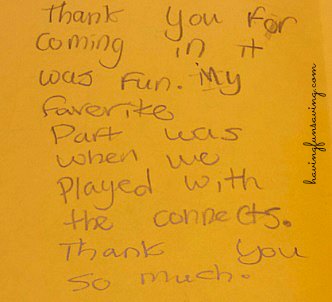 Thank you for
coming in it
was fun. My
favorite
Part was
when we
played with
the connects.
Thank you
so much.
havingfunsaving.com